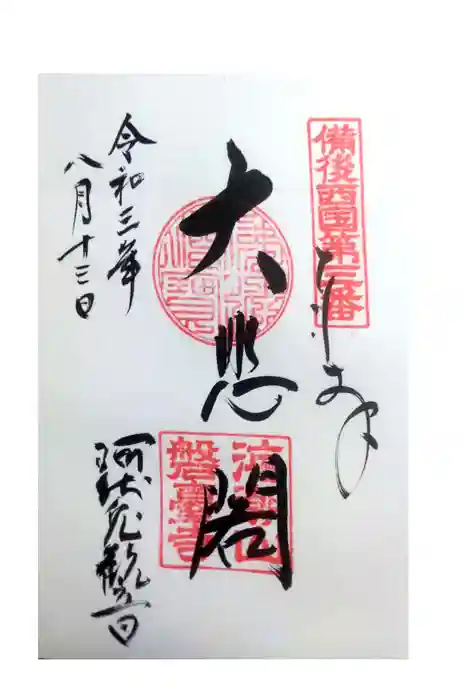 備後西国第三番
大悲閣
海潮山
磐臺寺
令和三年
八月十三日
阿伏兎観音